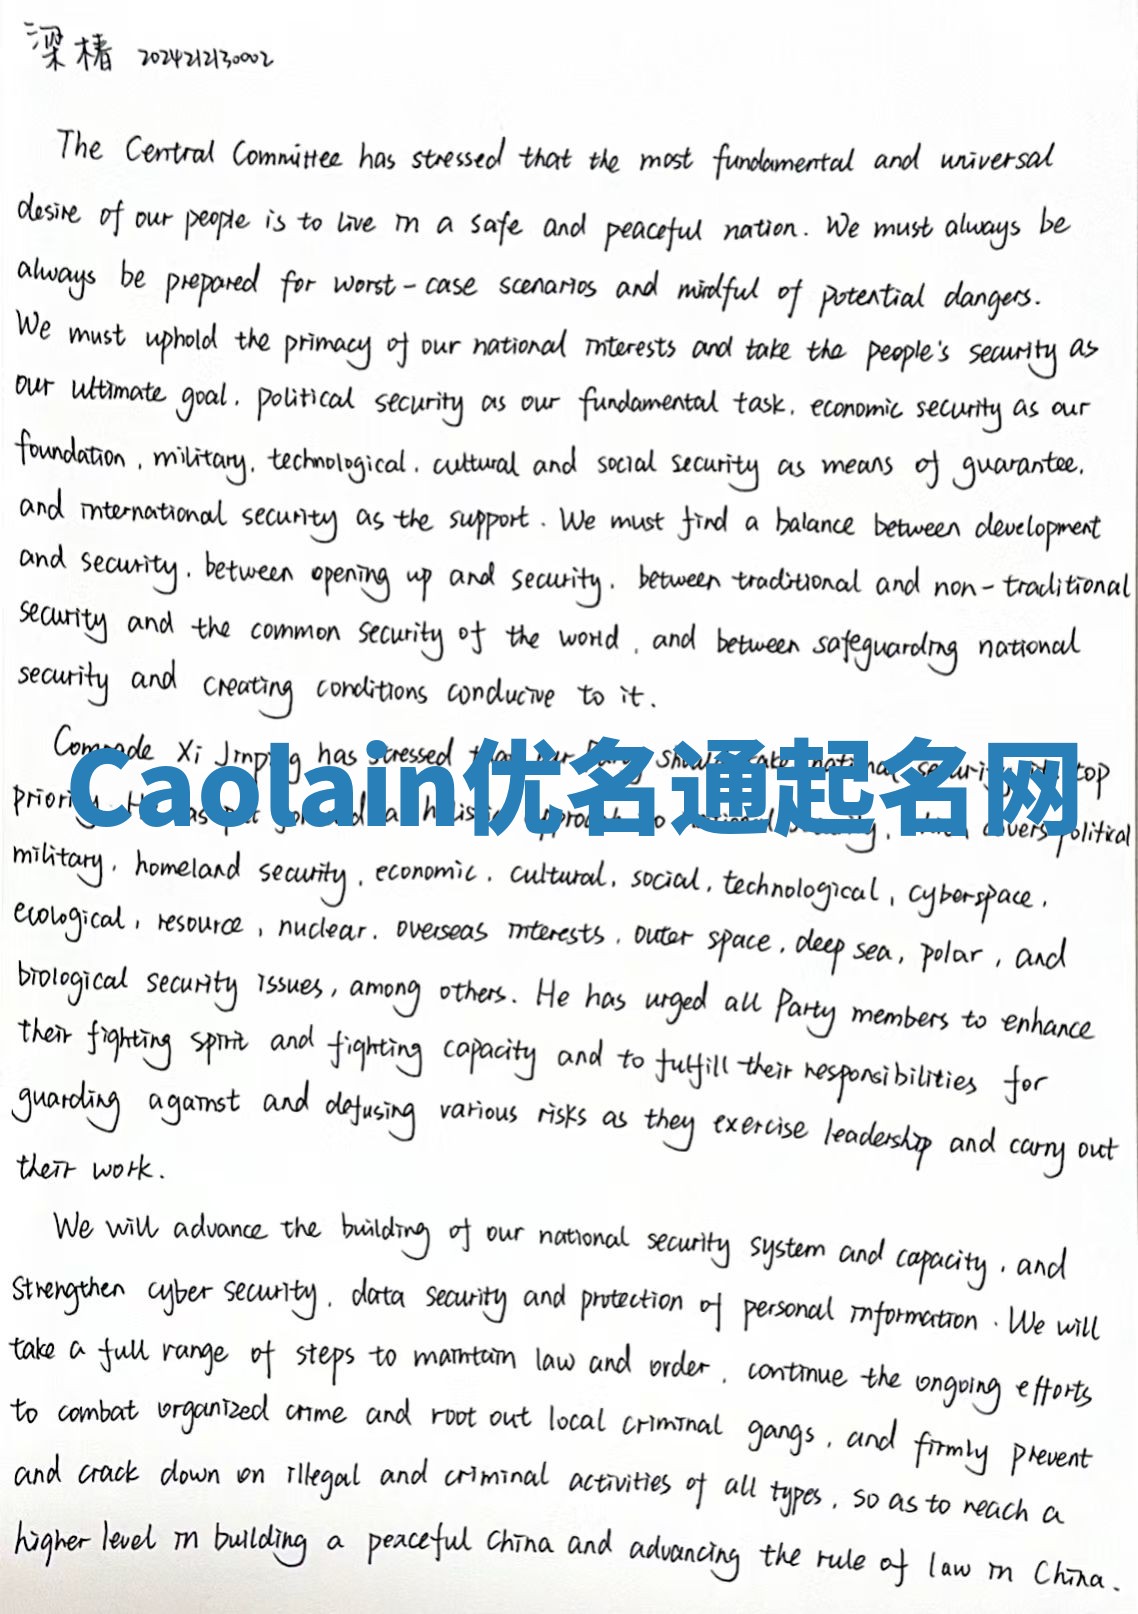 梁椿 2024212130002
The Central Committee has stressed that the most fundamental and universal
desire of our people is to live in a safe and peaceful nation. We must always be
always be prepared for worst-case scenarios and mindful of potential dangers.
We must uphold the primacy of our national interests and take the people's security as
our ultimate goal, political security as our fundamental task, economic security as our
foundation, military, technological, cultural and social security as means of guarantee,
and international security as the support. We must find a balance between development
and security, between opening up and security, between traditional and non-traditional
security and the common security of the world, and between safeguarding national
security and creating conditions conducive to it.
Comrade Xi Jinping has stressed top
Caolain优名通起名网
political
military, homeland security, economic, cultural, social, technological, cyberspace,
ecological, resource, nuclear, overseas interests, outer space, deep sea, polar, and
biological security issues, among others. He has urged all Party members to enhance
their fighting spirit and fighting capacity and to fulfill their responsibilities for
guarding against and defusing various risks as they exercise leadership and carry out
their work.
We will advance the building of our national security system and capacity, and
strengthen cyber security, data security and protection of personal information. We will
take a full range of steps to maintain law and order, continue the ongoing efforts
to combat organized crime and root out local criminal gangs, and firmly prevent
and crack down on illegal and criminal activities of all types, so as to reach a
higher level in building a peaceful China and advancing the rule of law in China.